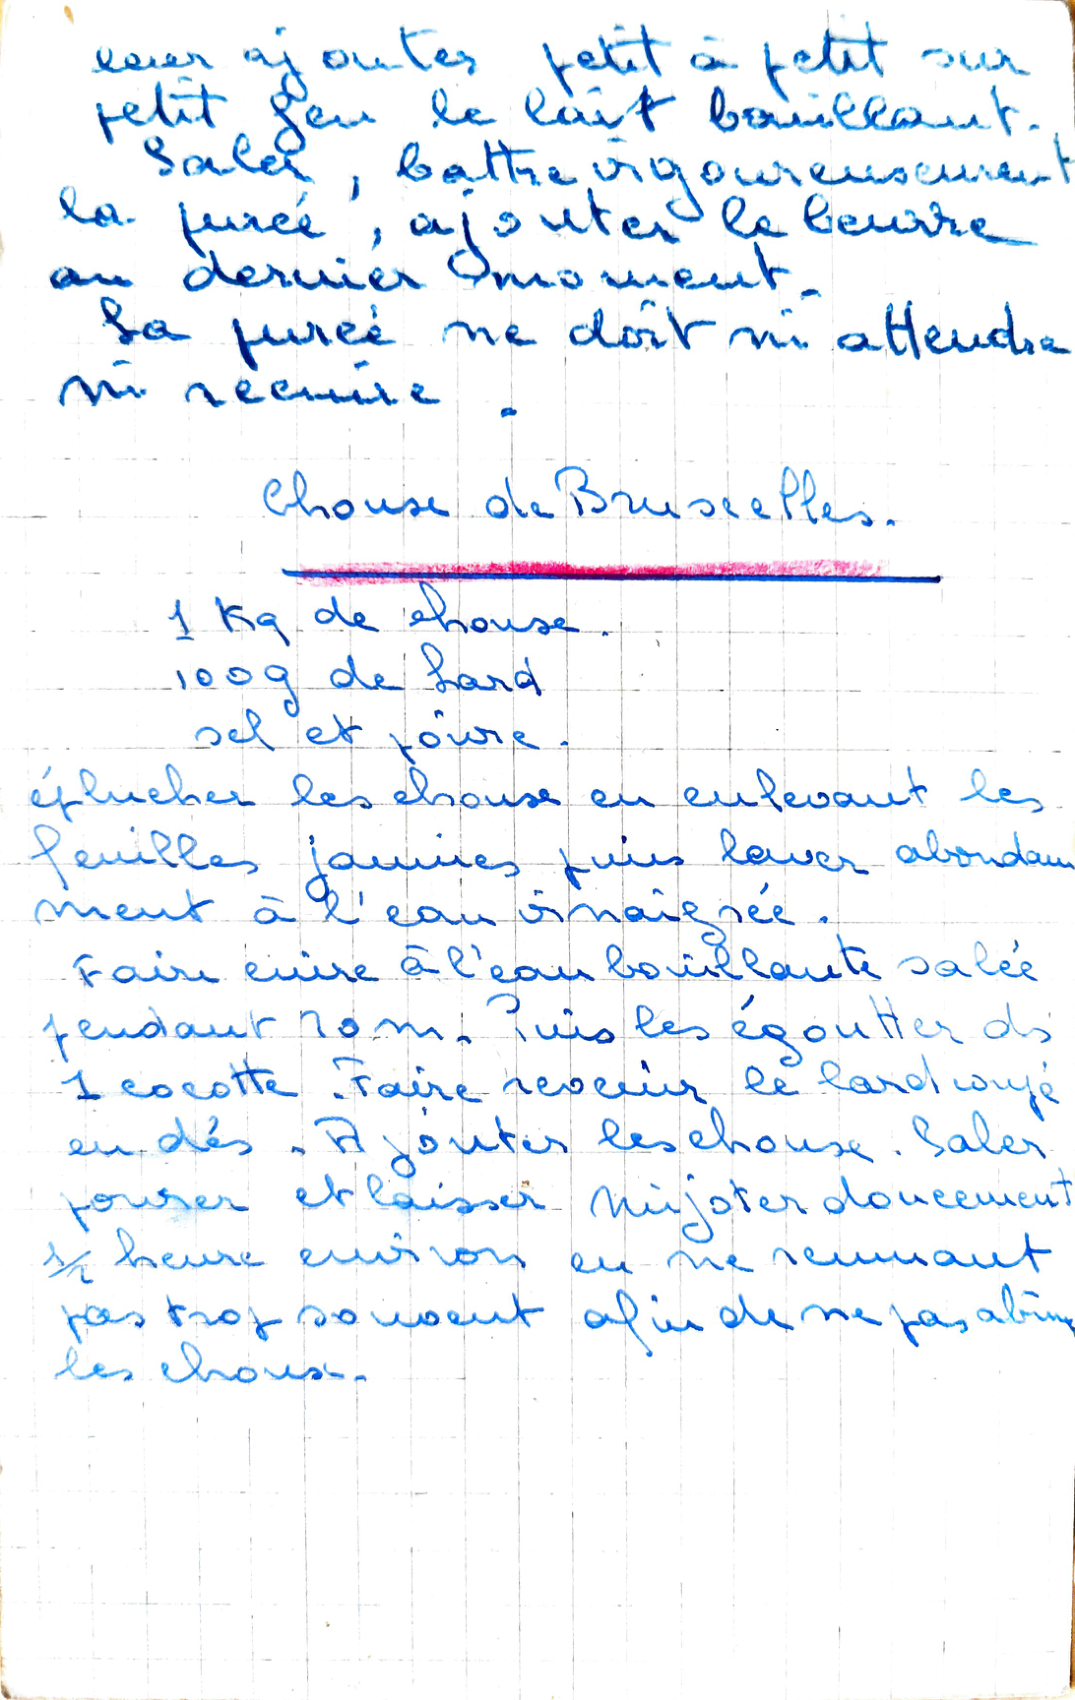 ajouter petit à petit sur
petit feu le lait bouillant.
Saler, battre vigoureusement
la purée, ajouter le beurre
au dernier moment.
La purée ne doit ni attendre
ni recuire.
Choux de Bruxelles.
1 Kg de choux.
100g de lard
sel et poivre.
éplucher les choux en enlevant les
feuilles jaunies puis laver abondam
ment à l'eau vinaigrée.
Faire cuire à l'eau bouillante salée
pendant 20 m. Puis les égoutter ds
1 cocotte. Faire revenir le lard coupé
en dés. Ajouter les choux. Saler
poivrer et laisser mijoter doucement
1/2 heure environ en ne remuant
pas trop souvent afin de ne pas abîmer
les choux.